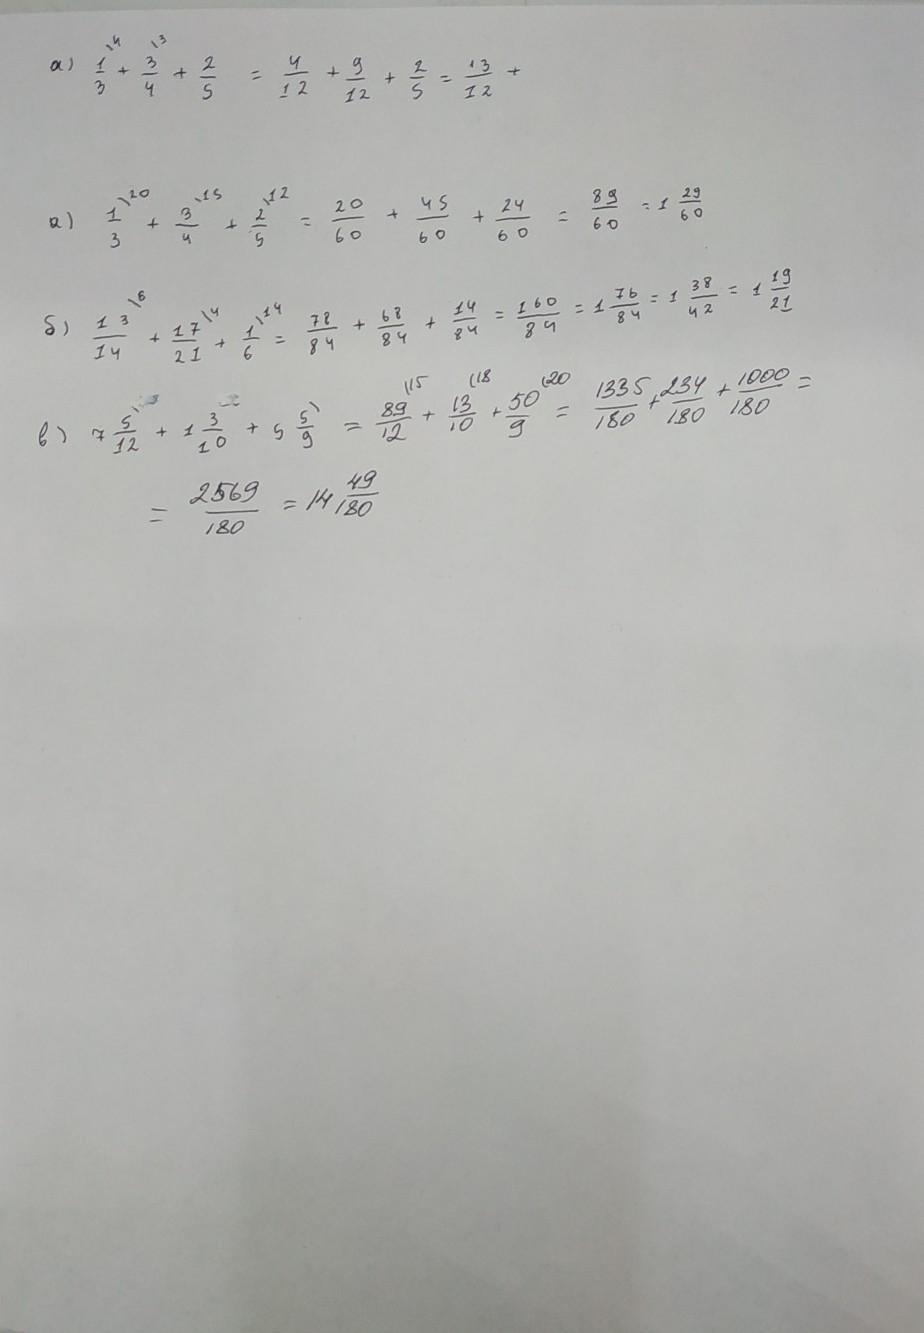 а) 1/3 \4 + 3/4 \3 + 2/5 = 4/12 + 9/12 + 2/5 = 13/12 +
а) 1/3 \20 + 3/4 \15 + 2/5 \12 = 20/60 + 45/60 + 24/60 = 89/60 = 1 29/60
б) 13/14 \6 + 17/21 \4 + 1/6 \14 = 78/84 + 68/84 + 14/84 = 160/84 = 1 76/84 = 1 38/42 = 1 19/21
в) 7 5/12 \ + 1 3/10 + 5 5/9 \ = 89/12 (15 + 13/10 (18 + 50/9 (20 = 1335/180 + 234/180 + 1000/180 =
= 2569/180 = 14 49/180